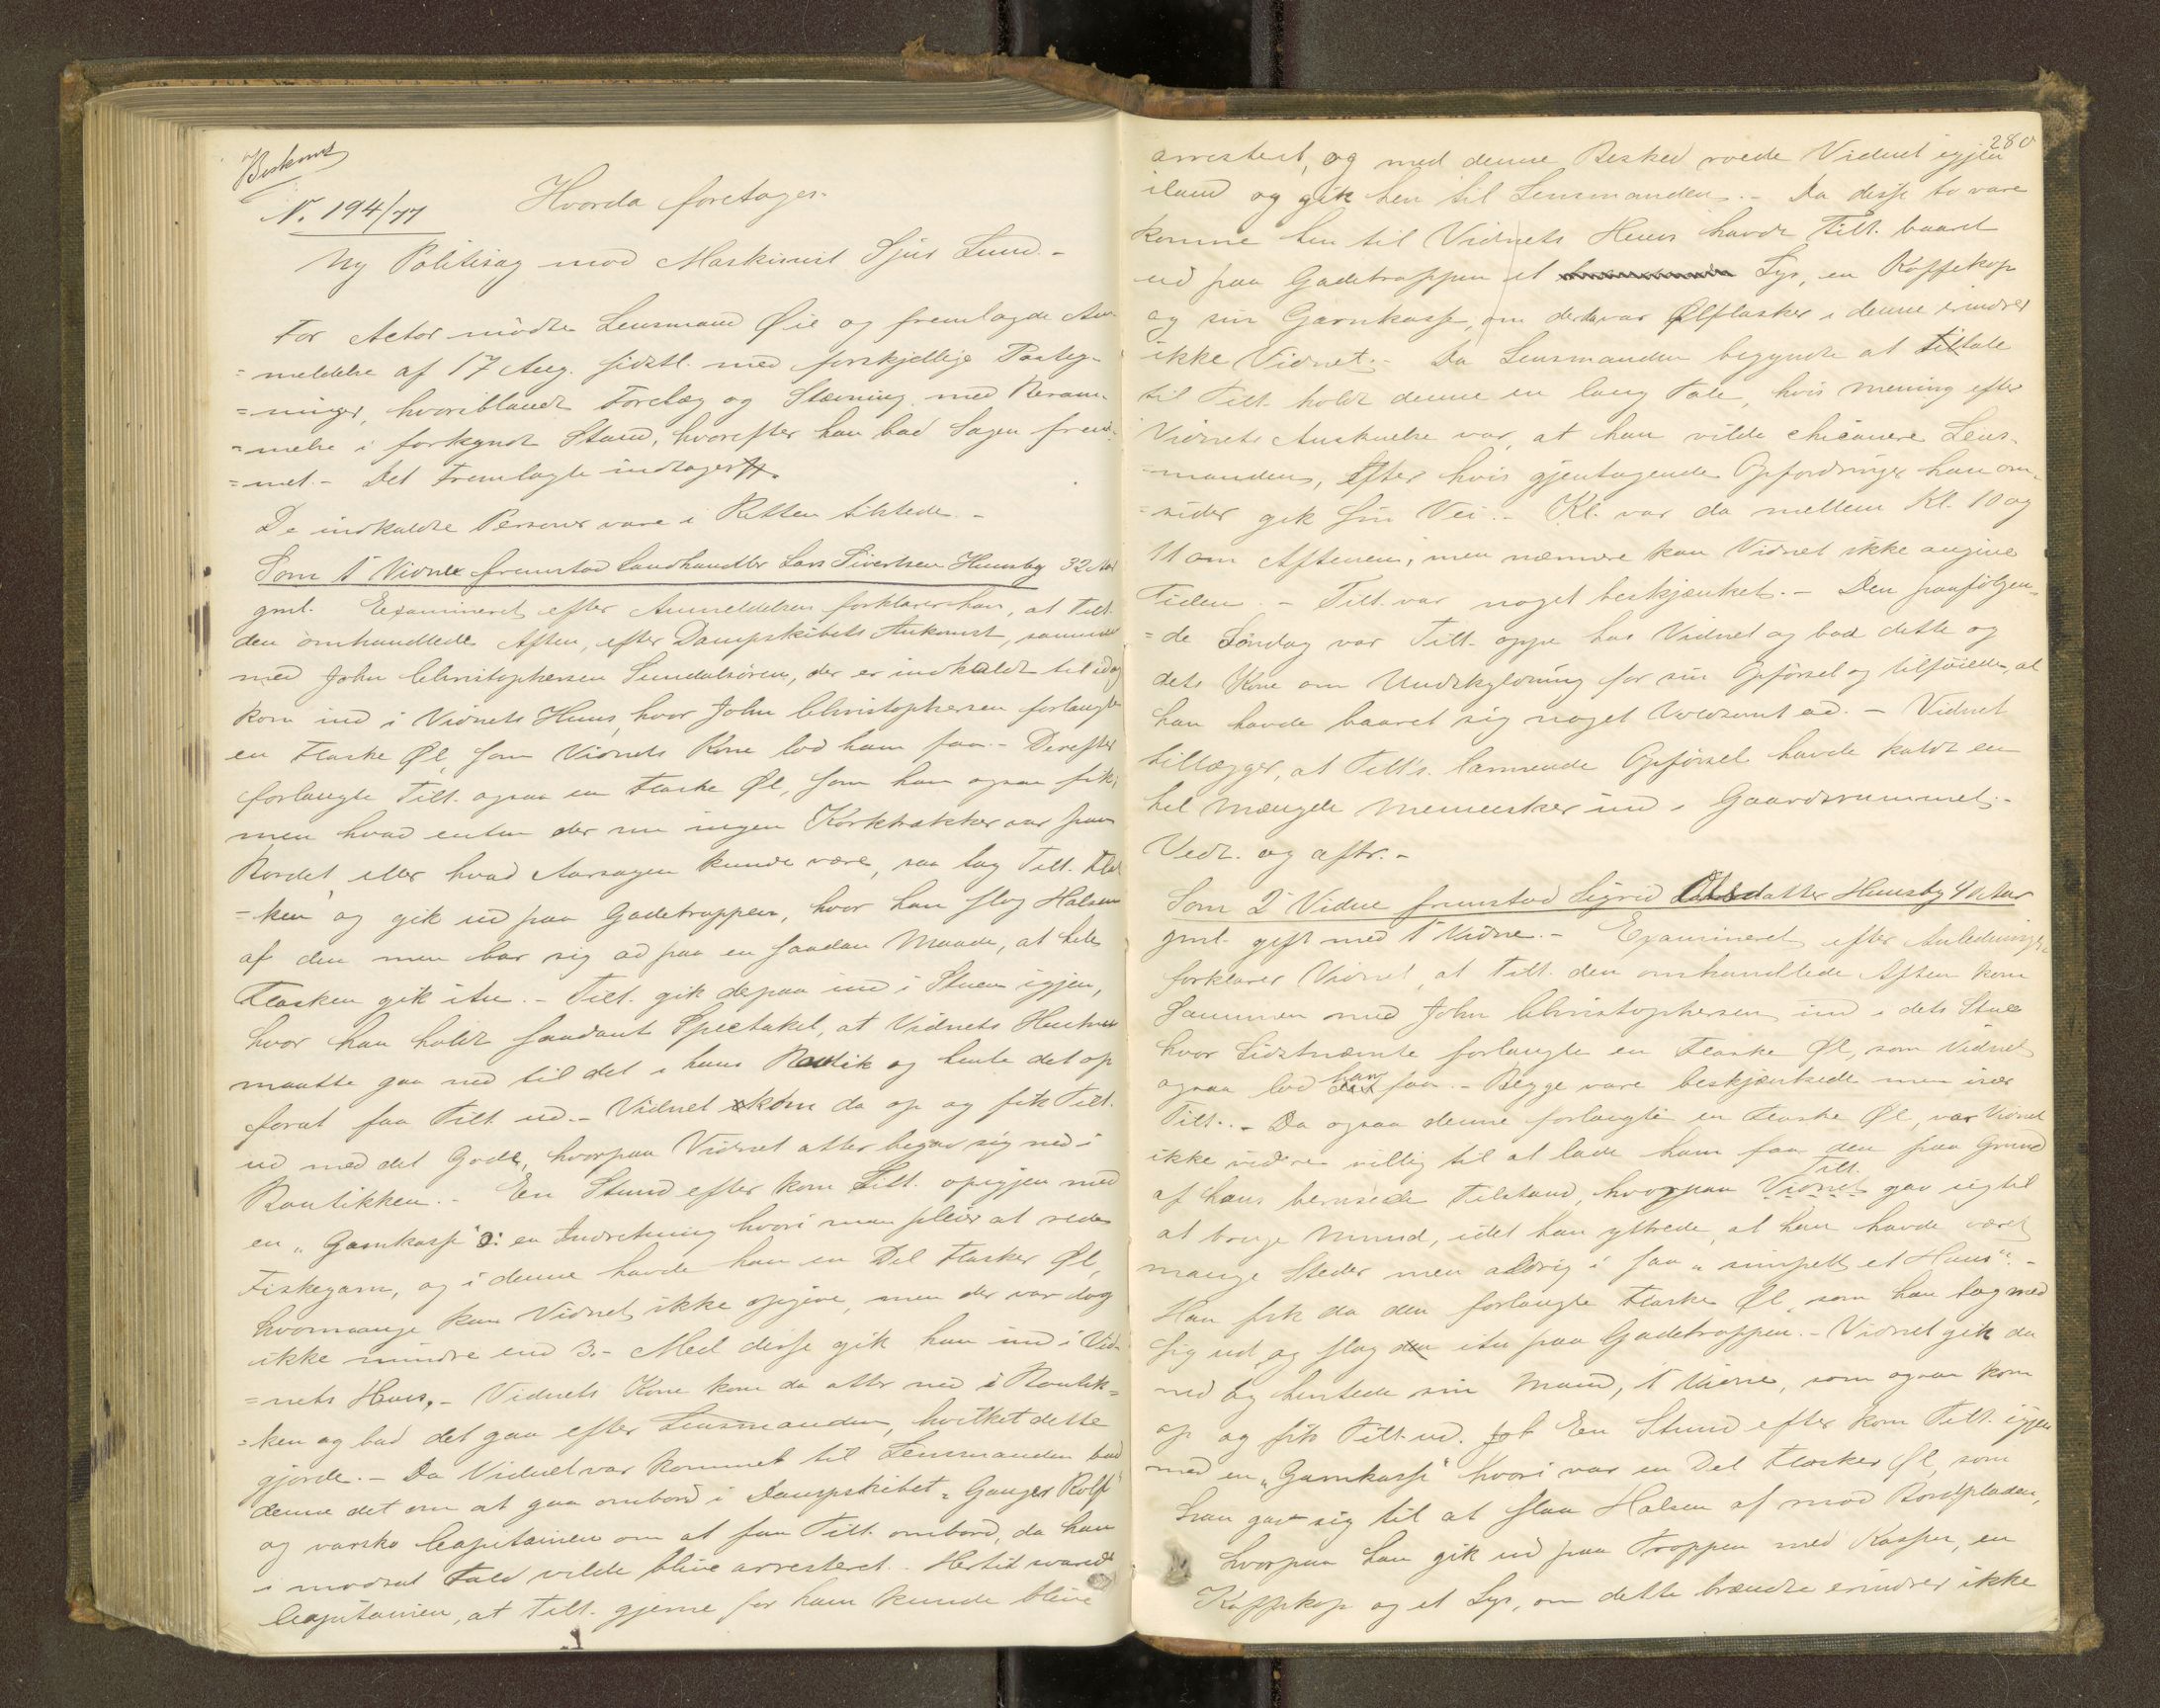 Beskrevet
N. 194/77
Hvorda foretoges.
Ny Politisag mod Maskinist Sjur Lund.-
For Actor mødte Lensmand Øie og fremlagde An-
=meldelse af 17 Aug. sidstl. med forskjellige Paateg-
=ninger, hvoriblandt Forelæg og Stævning med Beram-
=melse i forkyndt Stand, hvorefter han bad Sagen frem-
=met.- Det Fremlagte indtages
De indkaldte Personer vare i Retten tilstede.-
Som 1' Vidne fremstod Landhandler Lars Sivertsen Hunsby 32 Aar
gml. Examineret efter Anmeldelsen forklarer han, at Tilt.
den omhandlede Aften, efter Dampskibets Ankomst, sammen
med John Christophersen Sundalsøren, der er indkaldt til idag
kom ind i Vidnets Huus, hvor John Christophersen forlangte
en Flaske Øl, som Vidnets Kone lod ham faa.- Derefter
forlangte Tilt. ogsaa en Flaske Øl, som han ogsaa fik;
men hvad enten der nu ingen Korktrækker var paa
Bordet, eller hvad Aarsagen kunde være, saa tog Tilt. Flas
=ken og gik ud paa Gadetrappen, hvor han slog Halsen
af den men bar sig ad paa en saadan Maade, at hele
Flasken gik itu.- Tilt. gik depaa ind i Stuen igjen,
hvor han holdt saadant Spectakel, at Vidnets Hustru
maatte gaa ned til det i hans Boutik og hente det op
forat faa Tilt. ud.- Vidnet kom da op og fik Tilt.
ud med det Gode, hvorpaa Vidnet atter begav sig ned i
Boutikken.- En Stund efter kom Tilt. opigjen med
en "Garnkasse" ɔ: en Indretning hvori man pleier at rede
Fiskegarn, og i denne havde han en Del Flasker Øl,
hvormange kan Vidnet ikke opgive, men der var dog
ikke mindre end 3.- Med disse gik han ind i Vid-
=nets Huus.- Vidnets Kone kom da atter ned i Boutik=
=ken og bad det gaa efter Lensmanden, hvilket dette
gjorde.- Da Vidnet var kommet til Lensmanden bad
denne det om at gaa ombord i Dampskibet "Ganger Rolf"
og varsko Capitainen om at faa Tilt. ombord, da han
i modsat Fald vilde blive arresteret.- Hertil svarede
Capitainen, at Tilt. gjerne for ham kunde blive
280
arrestert, og med denne Besked roede Vidnet igjen
iland og gik hen til Lensmanden.- Da disse to vare
komne hen til Vidnets Huus havde Tilt. baaret
ud paa Gadetrappen et Lys, en Kaffekop
og sin Garnkasse, om der var Ølflasker i denne erindrer
ikke Vidnet.- Da Lensmanden begyndte at tale
til Tilt. holdt denne en lang Tale, hvis Mening efter
Vidnets Anskuelse var, at han vilde chicanere Lens-
=manden, Efter hvis gjentagende Opfordringer han om-
=sider gik sin Vei.- Kl. var da mellem Kl. 10 og
11 om Aftenen, men nærmere kan Vidnet ikke angive
Tiden.- Tilt. var noget beskjænket.- Den paafølgen-
=de Søndag var Tilt. oppe hos Vidnet og bad dette og
dets Kone om Undskyldning for sin Opførsel og tilføiede, at
han havde baaret sig noget voldsomt ad.- Vidnet
tillægger, at Tilt's. larmende Opførsel havde kaldt en
hel Mængde Mennesker ind i Gaardsrummet.-
Vedt. og aftr.-
Som 2' Vidne fremstod Sigrid Olsdatter Hunsby 41 Aar
gml. gift med 1' Vidne.- Examineret efter Anledning
forklarer Vidnet, at Tilt. den omhandlede Aften kom
Sammen med John Christophersen ind i dets Stue
hvor Sidstnævnte forlangte en Flaske Øl, som Vidnet
ogsaa lod ham faa.- Begge vare beskjænkede men især
Tilt..- Da ogsaa denne forlangte en Flaske Øl, var Vidnet
ikke videre villig til at lade ham faa den paa Grund
af hans berusede Tilstand, hvorpaa Vidnet gav sig til
Tilt.
at bruge Mund, idet han yttrede, at han havde været
mange Steder men aldrig i saa "simpelt et Huus".-
Han fik da den forlangte Flaske Øl, som han tog med
sig ud og slog den itu paa Gadetrappen.- Vidnet gik da
ned og hentede sin Mand, 1' Vidne, som ogsaa kom
op og fik Tilt. ud. En Stund efter kom Tilt. igjen
med en "Garnkasse" hvori var en Del Flasker Øl, som
han gav sig til at slaa Halsen af mod Bordpladen,
hvorpaa han gik ud paa Trappen med Kassen, en
Kaffekop og et Lys, om dette brændte erindrer ikke